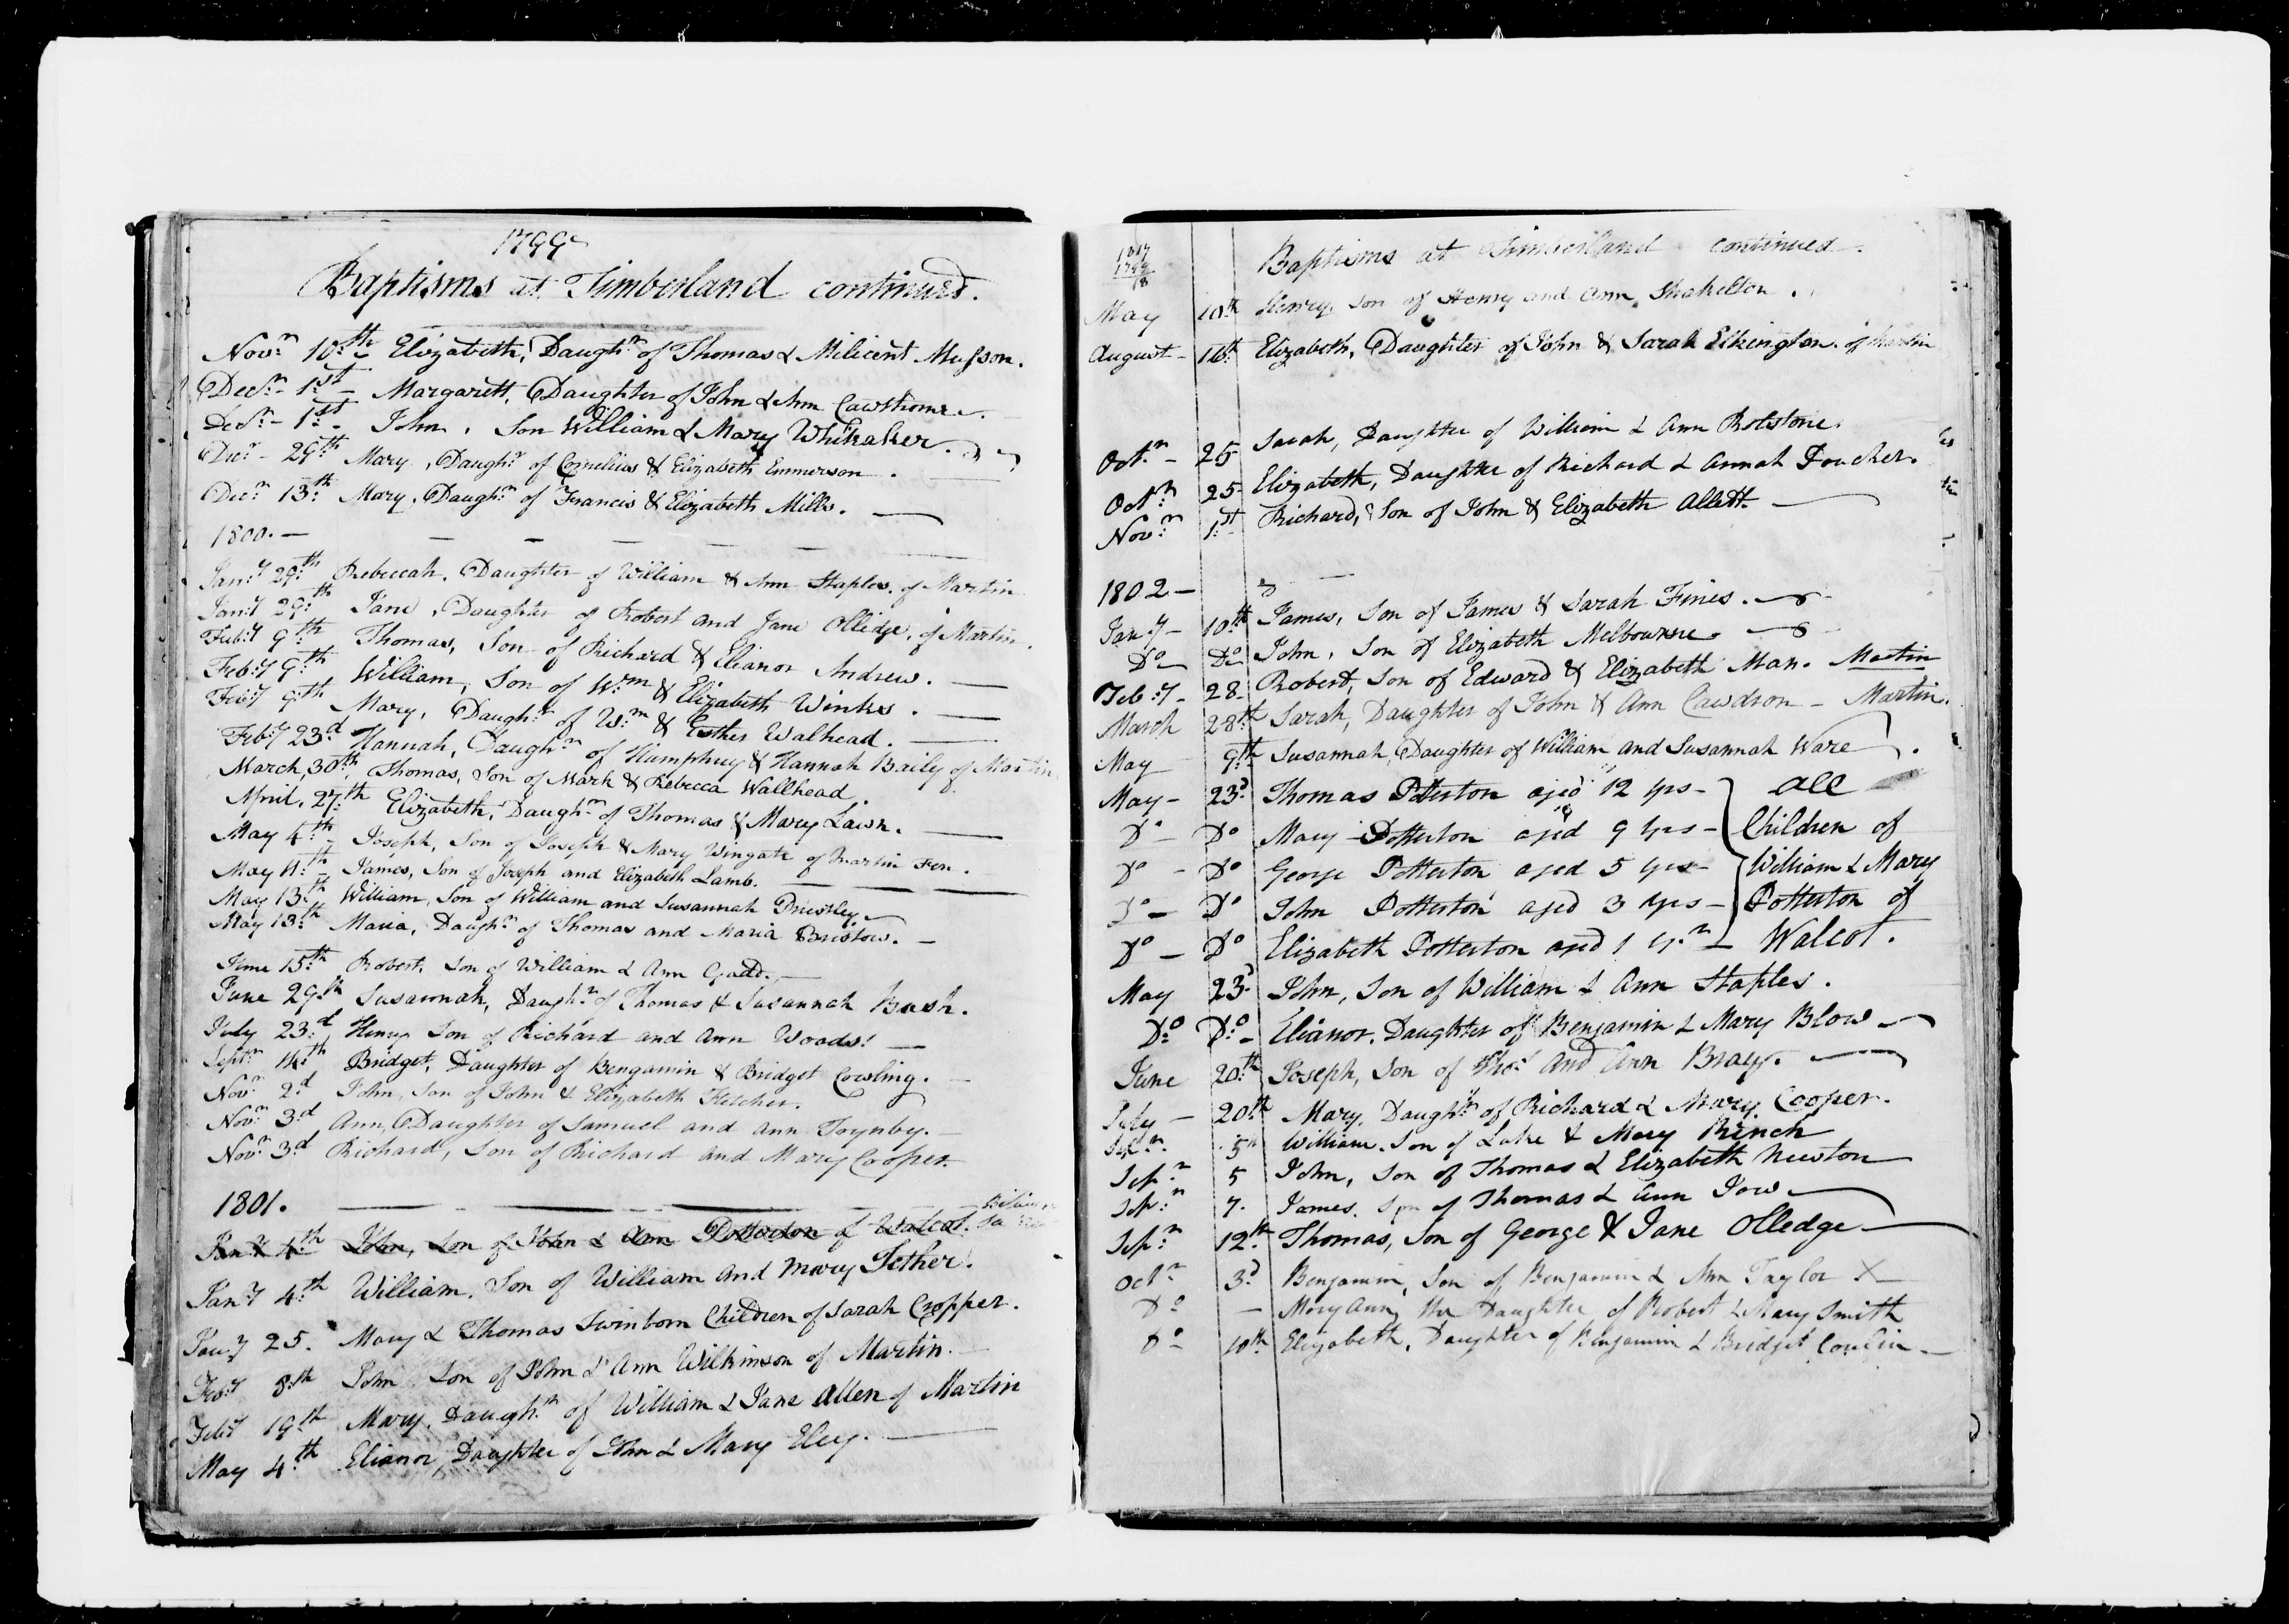 1799
Baptisms at Timberland continued.
Novr. 10th Elizabeth, Daughr. of Thomas & Milicent Musson.
Decr. 1st Margarett, Daughter of John & Ann Cawthorne.
Decr. 1st John, Son William & Mary Whikaker.
Decr. 29th Mary, Daughr. of Cornelius & Elizabeth Emmerson.
Decr. 13th Mary, Daughr. of Francis & Elizabeth Mills.
1800.
Jany. 29th Rebeccah, Daughter of William & Ann Staples, of Martin
Jany. 29th Jane, Daughter of Robert and Jane Olledge, of Martin.
Feby. 9th Thomas, Son of Richard & Elianor Andrew.
Feby. 9th William, Son of Wm. & Elizabeth Winks.
Feby. 9th Mary, Daughr. of Wm. & Esther Walhead.
Feby. 23d Hannah, Daughr. of Humphrey & Hannah Baily of Martin
March, 30th Thomas, Son of Mark & Rebecca Wallhead.
April, 27th Elizabeth, Daughr. of Thomas & Mary Lawn.
May 4th Joseph, Son of Joseph & Mary Wingate of Martin Fen.
May 11th James, Son of Joseph and Elizabeth Lamb.
May 13th William, Son of William and Susannah Priestley
May 18th Maria, Daughr. of Thomas and Maria Bristow.
June 15th Robert, Son of William & Ann Gadd.
June 29th Susannah, Daughr. of Thomas & Susannah Bush.
July 23d Henry Son of Richard and Ann Woods.
Septr. 14th Bridget, Daughter of Bengamin & Bridget Cowling.
Novr. 2d John, Son of John & Elizabeth Fletcher.
Novr. 3d Ann, Daughter of Samuel and Ann Toynby.
Novr. 3d Richard, Son of Richard and Mary Cooper.
1801.
Jany. 4th John, Son of John & Ann Potterton of Walcot.
Jany. 4th William, Son of William and Mary Tether.
Jany 25. Mary & Thomas Swinborn Children of Sarah Cropper.
Feby. 8th John Son of John & Ann Wilkinson of Martin.
Feby. 19th Mary, Daughr. of William & Jane Allen of Martin
May 4th Elianor, Daughter of John & Mary Eley.
1817
1799
18
Baptisms at Timberland continued.
May 10th Henry, Son of Henry and Ann Shakelton.
August 16th Elizabeth, Daughter of John & Sarah Elkington. of Martin
Octr. 25 Sarah, Daughter of William & Ann Rolstone.
Octr. 25 Elizabeth, Daughter of Richard & Annah Foucher.
Novr. 1st Richard, Son of John & Elizabeth Allett.
1802
Jany. 10th James, Son of James & Sarah Fines.
Do Do John, Son of Elizabeth Melbourne.
Feb:y 28 Robert, Son of Edward & Elizabeth Man. Martin
March 28th Sarah, Daughter of John & Ann Cawdron - Martin.
May 9th Susannah, Daughter of William and Susannah Ware
May - 23d Thomas Potterton aged 12 yrs - All
Do - Do Mary Potterton aged 9 yrs - Children of
Do - Do George Potterton aged 5 yrs William & Mary
Do - Do John Potterton aged 3 yrs - Potterton of
Do - Do Elizabeth Potterton aged 1 yr. - Walcot.
May 23d John, Son of William & Ann Staples.
Do Do Elianor, Daughter of Benjamin & Mary Blow
June 20th Joseph, Son of Thos. and Ann Bray.
July - 20th Mary, Daughr. of Richard & Mary Cooper.
Sepr. 5th William, Son of Luke & Mary Rinch
Sepr. 5 John, Son of Thomas & Elizabeth Newton
Sepr. 7. James, Son of Thomas & Ann Tow
Sepr. 12th Thomas, Son of George & Jane Olledge
Octr. 3d Benjamin, Son of Benjamin & Ann Taylor X
Do - Mary Ann, the Daughter of Robert & Mary Smith
Do 10th Elizabeth, Daughter of Benjamin & Bridget Conlin